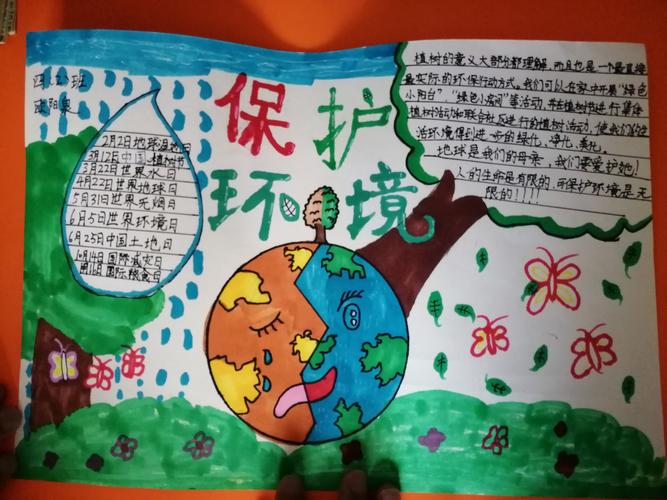 保护
环境
四(2)班
欧阳泉
2月2日地球湿地日
3月12日中国植树节
3月22日世界水日
4月22日世界地球日
5月31日世界无烟日
6月5日世界环境日
6月25日中国土地日
10月14日国际减灾日
10月16日国际粮食日
植树的意义大部分都理解,而且也是一个最直接
最实际的环保行动方式。我们可以在家中开展“绿色
小阳台”“绿色小房间”等活动,并在植树节进行集体
植树活动和联合社区进行的植树活动,使我们的生
活环境得到进一步的绿化、净化、美化。
地球是我们的母亲,我们需要爱护她!
人的生命是有限的,可保护环境是无
限的!!!!